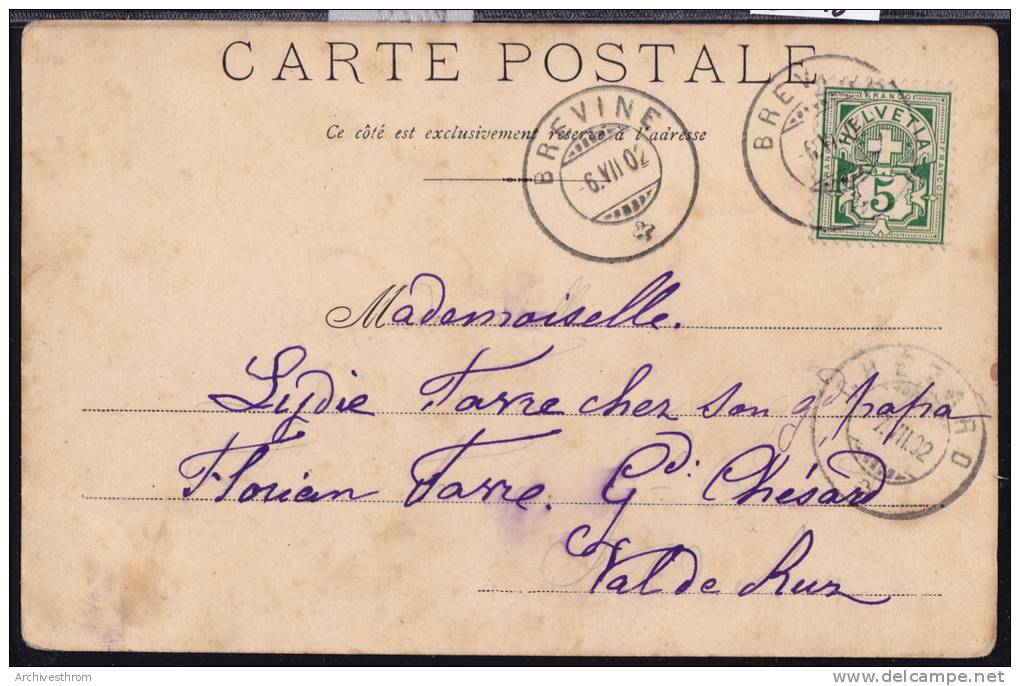 CARTE POSTALE
Ce côté est exclusivement réservé à l'adresse
BREVINE
-6.XII.02
BREVINE
FRANCO
HELVETIA
FRANCO
FRANCO
5
Mademoiselle.
Lydie Favre chez son gd papa
Florian Favre. Gd: Chésard
Val de Ruz
CHÉZARD
VII.02
Archivesthrom
delcampe.net